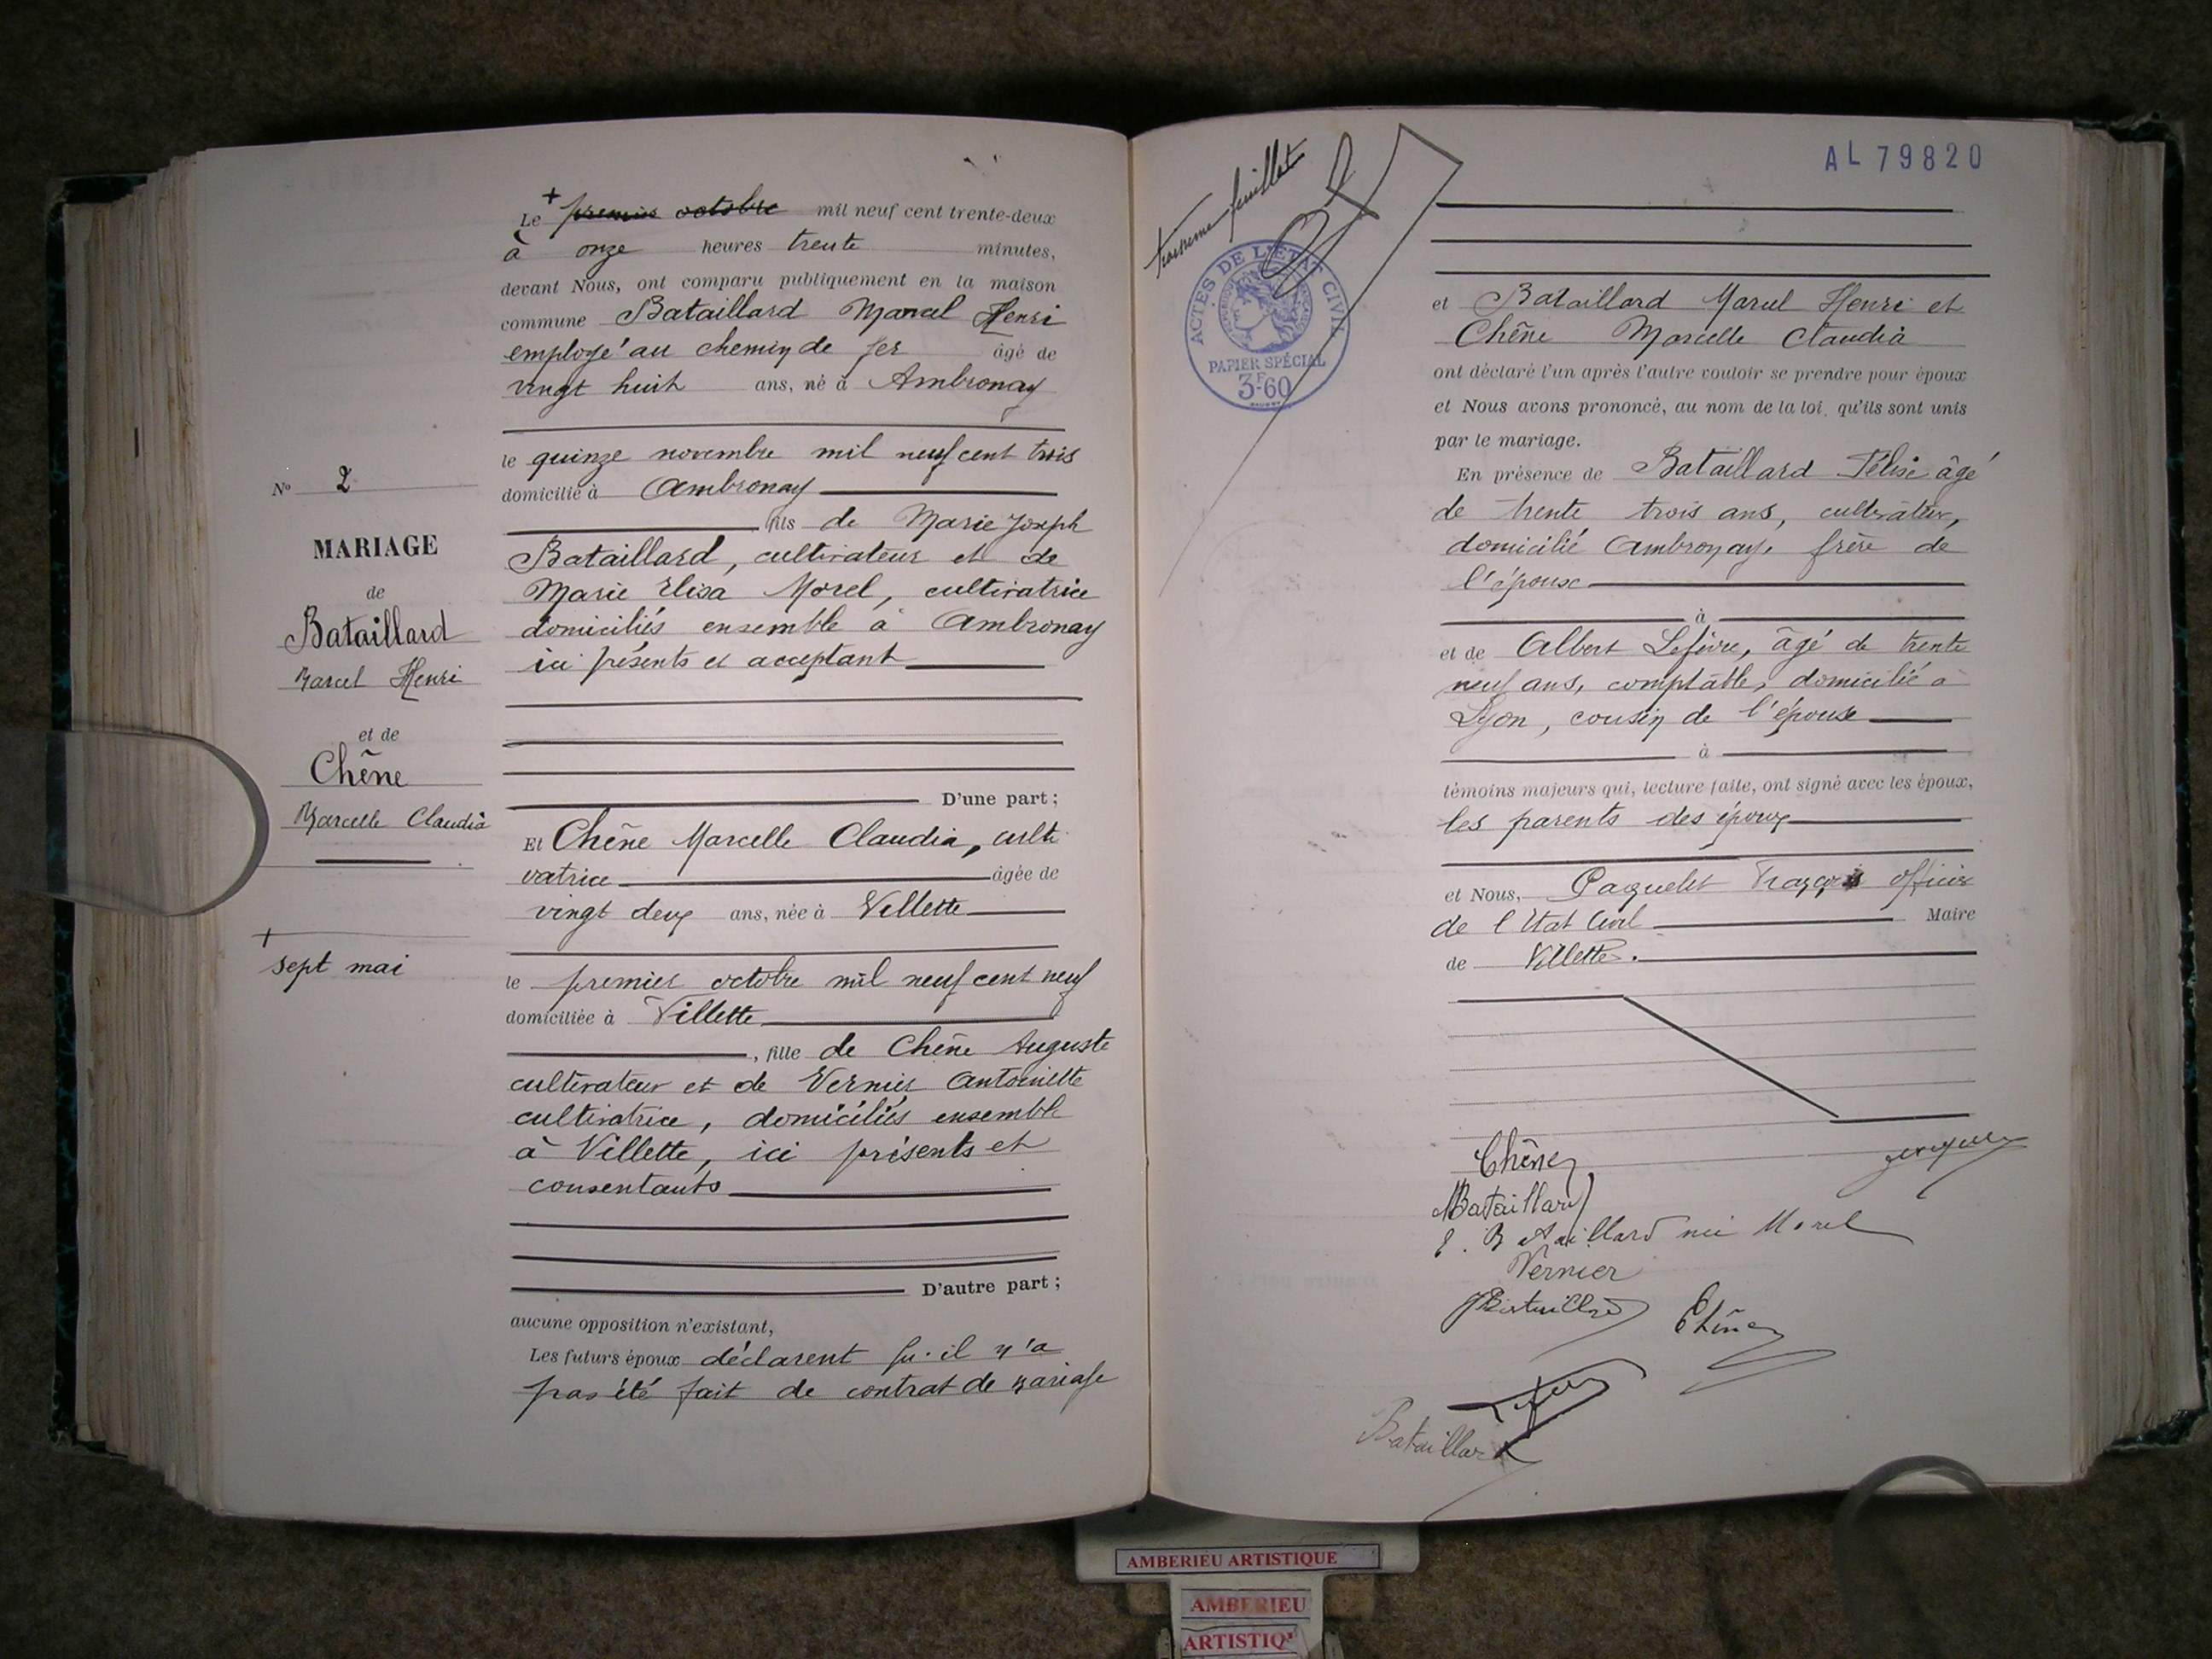 N° 2
MARIAGE
de
Bataillard
Marcel Henri
et de
Chêne
Marcelle Claudia
+
sept mai
+
Le premier octobre mil neuf cent trente-deux
à onze heures trente minutes,
devant Nous, ont comparu publiquement en la maison
commune Bataillard Marcel Henri
employé au chemin de fer âgé de
vingt huit ans, né à Ambronay
le quinze novembre mil neuf cent trois
domicilié à Ambronay
fils de Marie Joseph
Bataillard, cultivateur et de
Marie Elisa Morel, cultivatrice
domiciliés ensemble à Ambronay
ici présents et acceptant
D'une part;
Et Chêne Marcelle Claudia, culti
vatrice âgée de
vingt deux ans, née à Villette
le premier octobre mil neuf cent neuf
domiciliée à Villette
, fille de Chêne Auguste
cultivateur et de Vernier Antoinette
cultivatrice, domiciliés ensemble
à Villette, ici présents et
consentants
D'autre part;
aucune opposition n'existant,
Les futurs époux déclarent qu'il n'a
pas été fait de contrat de mariage
troisième feuillet
ACTES DE L'ÉTAT CIVIL
PAPIER SPÉCIAL
3F60
AL 79820
et Bataillard Marcel Henri et
Chêne Marcelle Claudia
ont déclaré l'un après l'autre vouloir se prendre pour époux
et Nous avons prononcé, au nom de la loi, qu'ils sont unis
par le mariage.
En présence de Bataillard Félise âgé
de trente trois ans, cultivateur,
domicilié Ambronay, frère de
l'épouse
à
et de Albert Lefèvre, âgé de trente
neuf ans, comptable, domicilié à
Lyon, cousin de l'épouse
à
témoins majeurs qui, lecture faite, ont signé avec les époux,
les parents des époux
et Nous, Paquelet François officier
de l'Etat Civil Maire
de Villette.
Chêne
MBataillard
E. Bataillard née Morel
Vernier
JBataillard Chêne
Bataillard
AMBERIEU ARTISTIQUE
AMBERIEU
ARTISTIQ